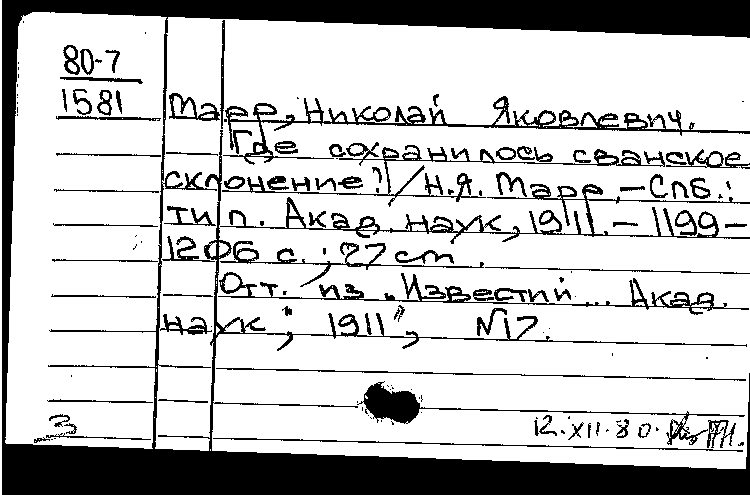 80-7
1581
Марр, Николай Яковлевич.
Где сохранилось сванское
склонение? / Н.Я. Марр. – Спб.:
тип. Акад. наук, 1911. – 1199–
1206 с.; 27 cm.
Отт. из „Известий... Акад.
наук", 1911, N17.
3
12.XII.80.